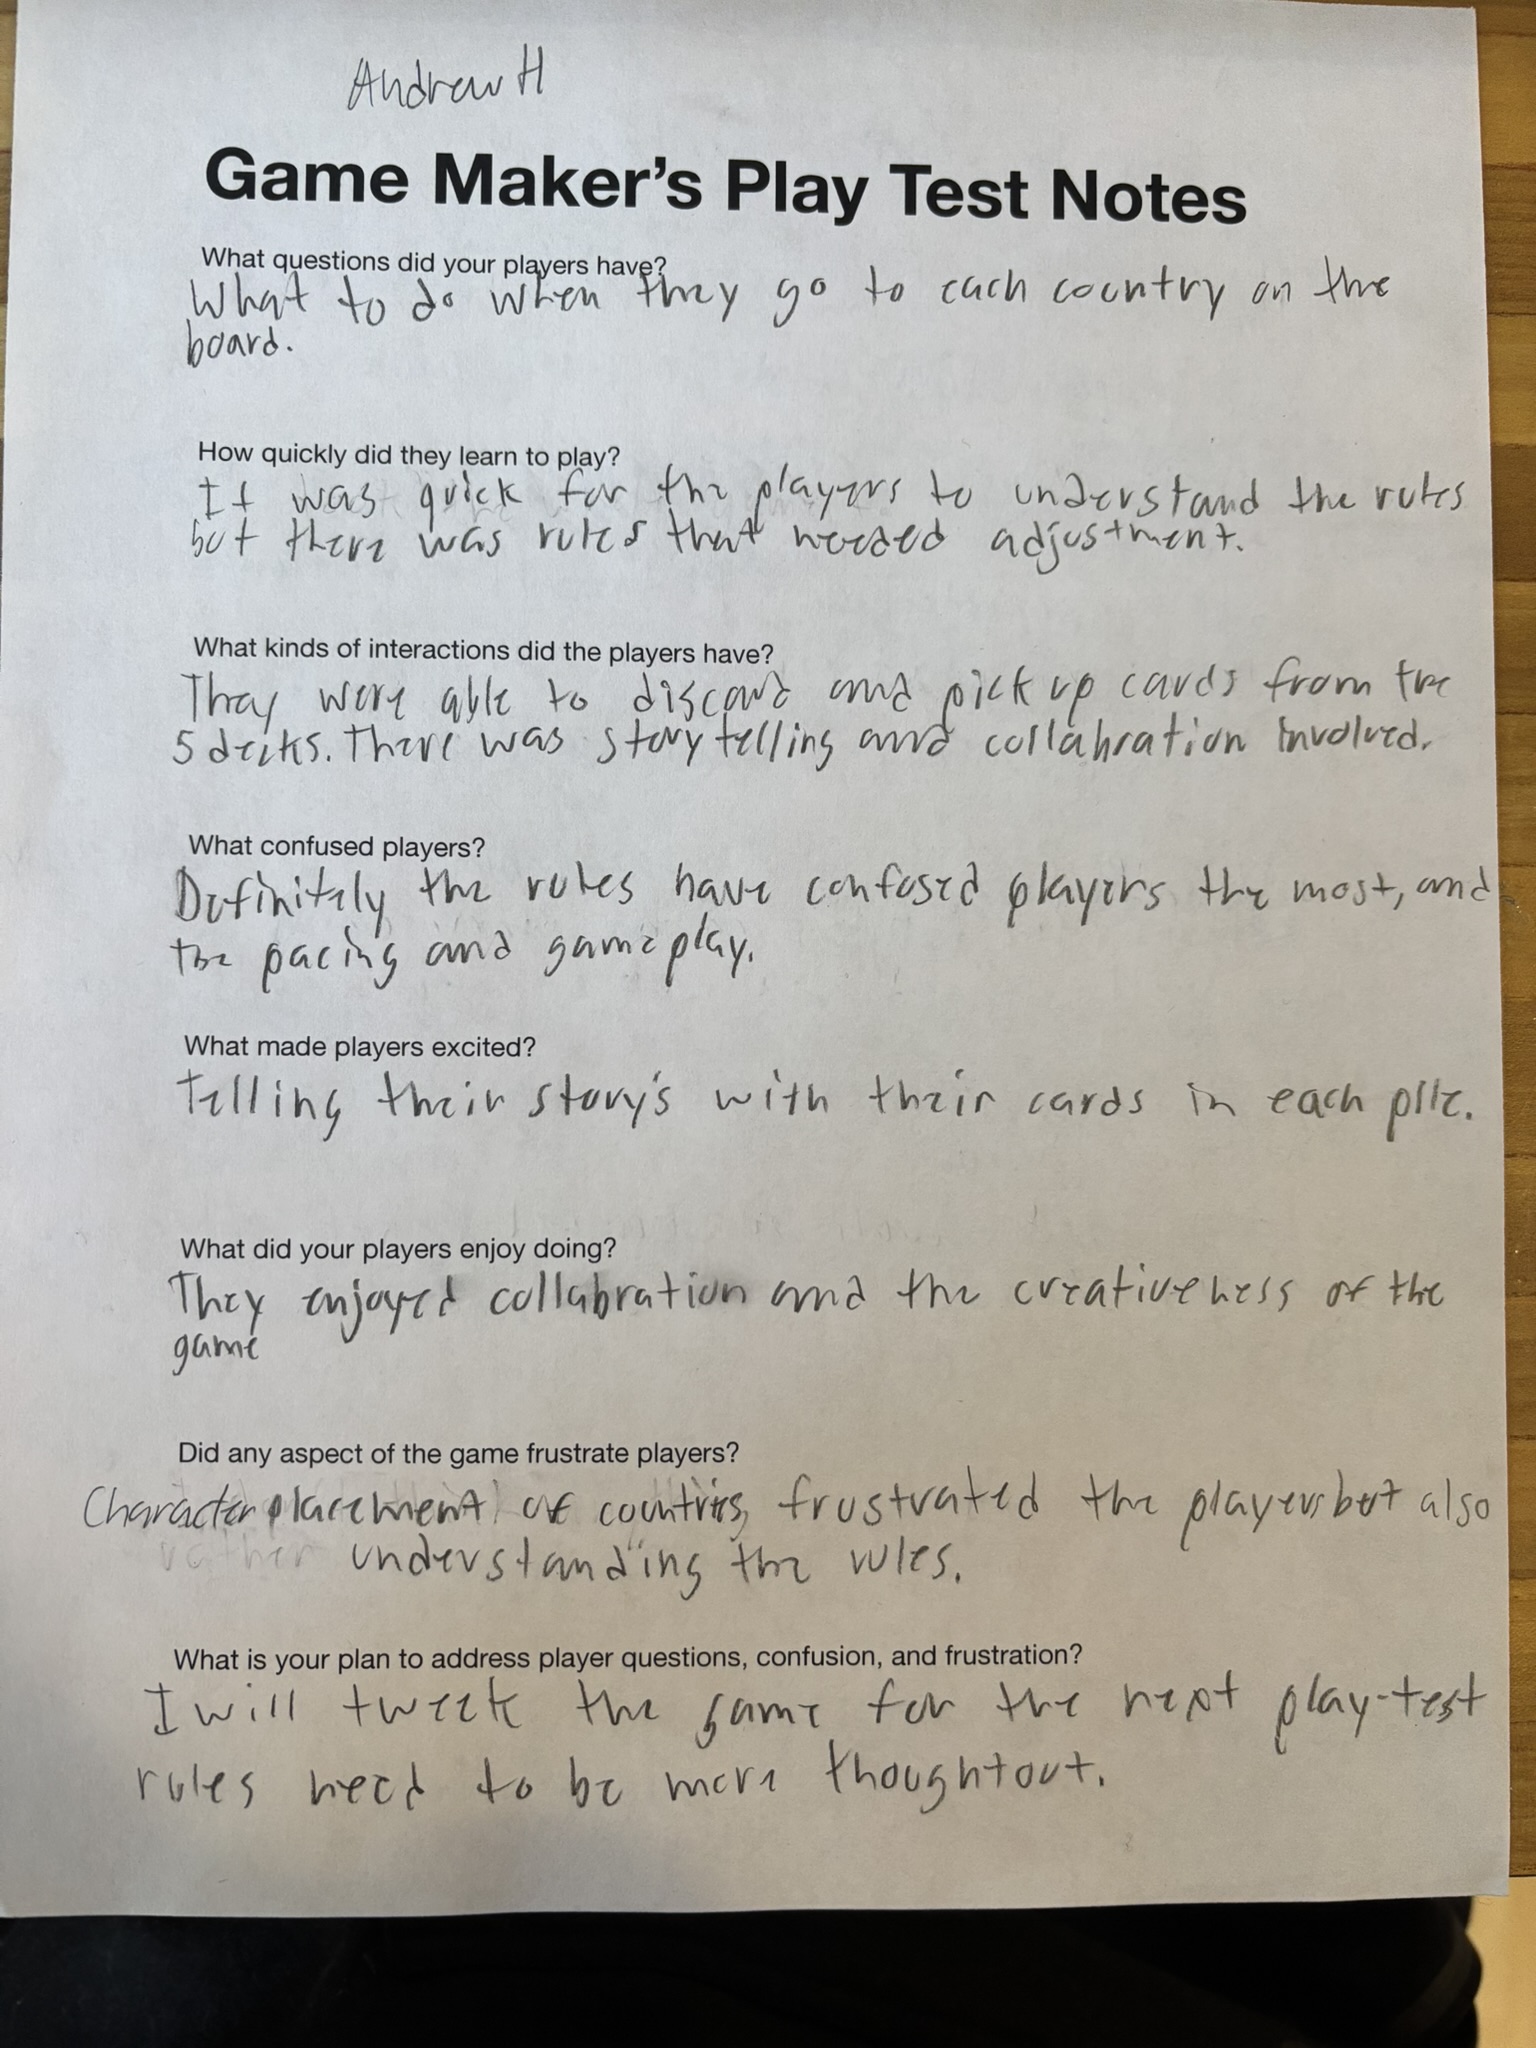 Andrew H
Game Maker's Play Test Notes
What questions did your players have?
What to do when they go to each country on the
board.
How quickly did they learn to play?
It was quick for the players to understand the rules
but there was rules that needed adjustment.
What kinds of interactions did the players have?
They were able to discard and pick up cards from the
5 decks. There was story telling and collabration involved.
What confused players?
Definitely the rules have confused players the most, and
the pacing and gameplay.
What made players excited?
Telling their story's with their cards in each pile.
What did your players enjoy doing?
They enjoyed collabration and the creativeness of the
game
Did any aspect of the game frustrate players?
Character placement of countries, frustrated the players but also
understanding the rules.
What is your plan to address player questions, confusion, and frustration?
I will tweek the game for the next play-test
rules need to be more thoughtout.